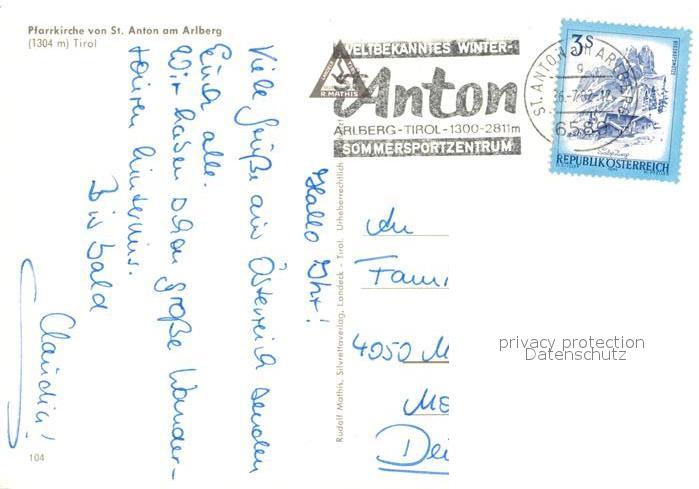 Pfarrkirche von St. Anton am Arlberg
(1304 m) Tirol
WELTBEKANNTES WINTER-
R. MATHIS
Anton
ARLBERG-TIROL-1300-2811m
SOMMERSPORTZENTRUM
ST. ANTON AM ARLBERG
6580
3 S
REPUBLIK ÖSTERREICH
Hallo Ihr!
Viele Grüße aus Österreich senden
Euch alle.
Wir haben schon große Wander-
touren hinter uns.
Bis bald
Claudia!
Rudolf Mathis, Silvrettaverlag, Landeck - Tirol. Urheberrechtlich
An
Fami
4050 M
Me
De
privacy protection
Datenschutz
104